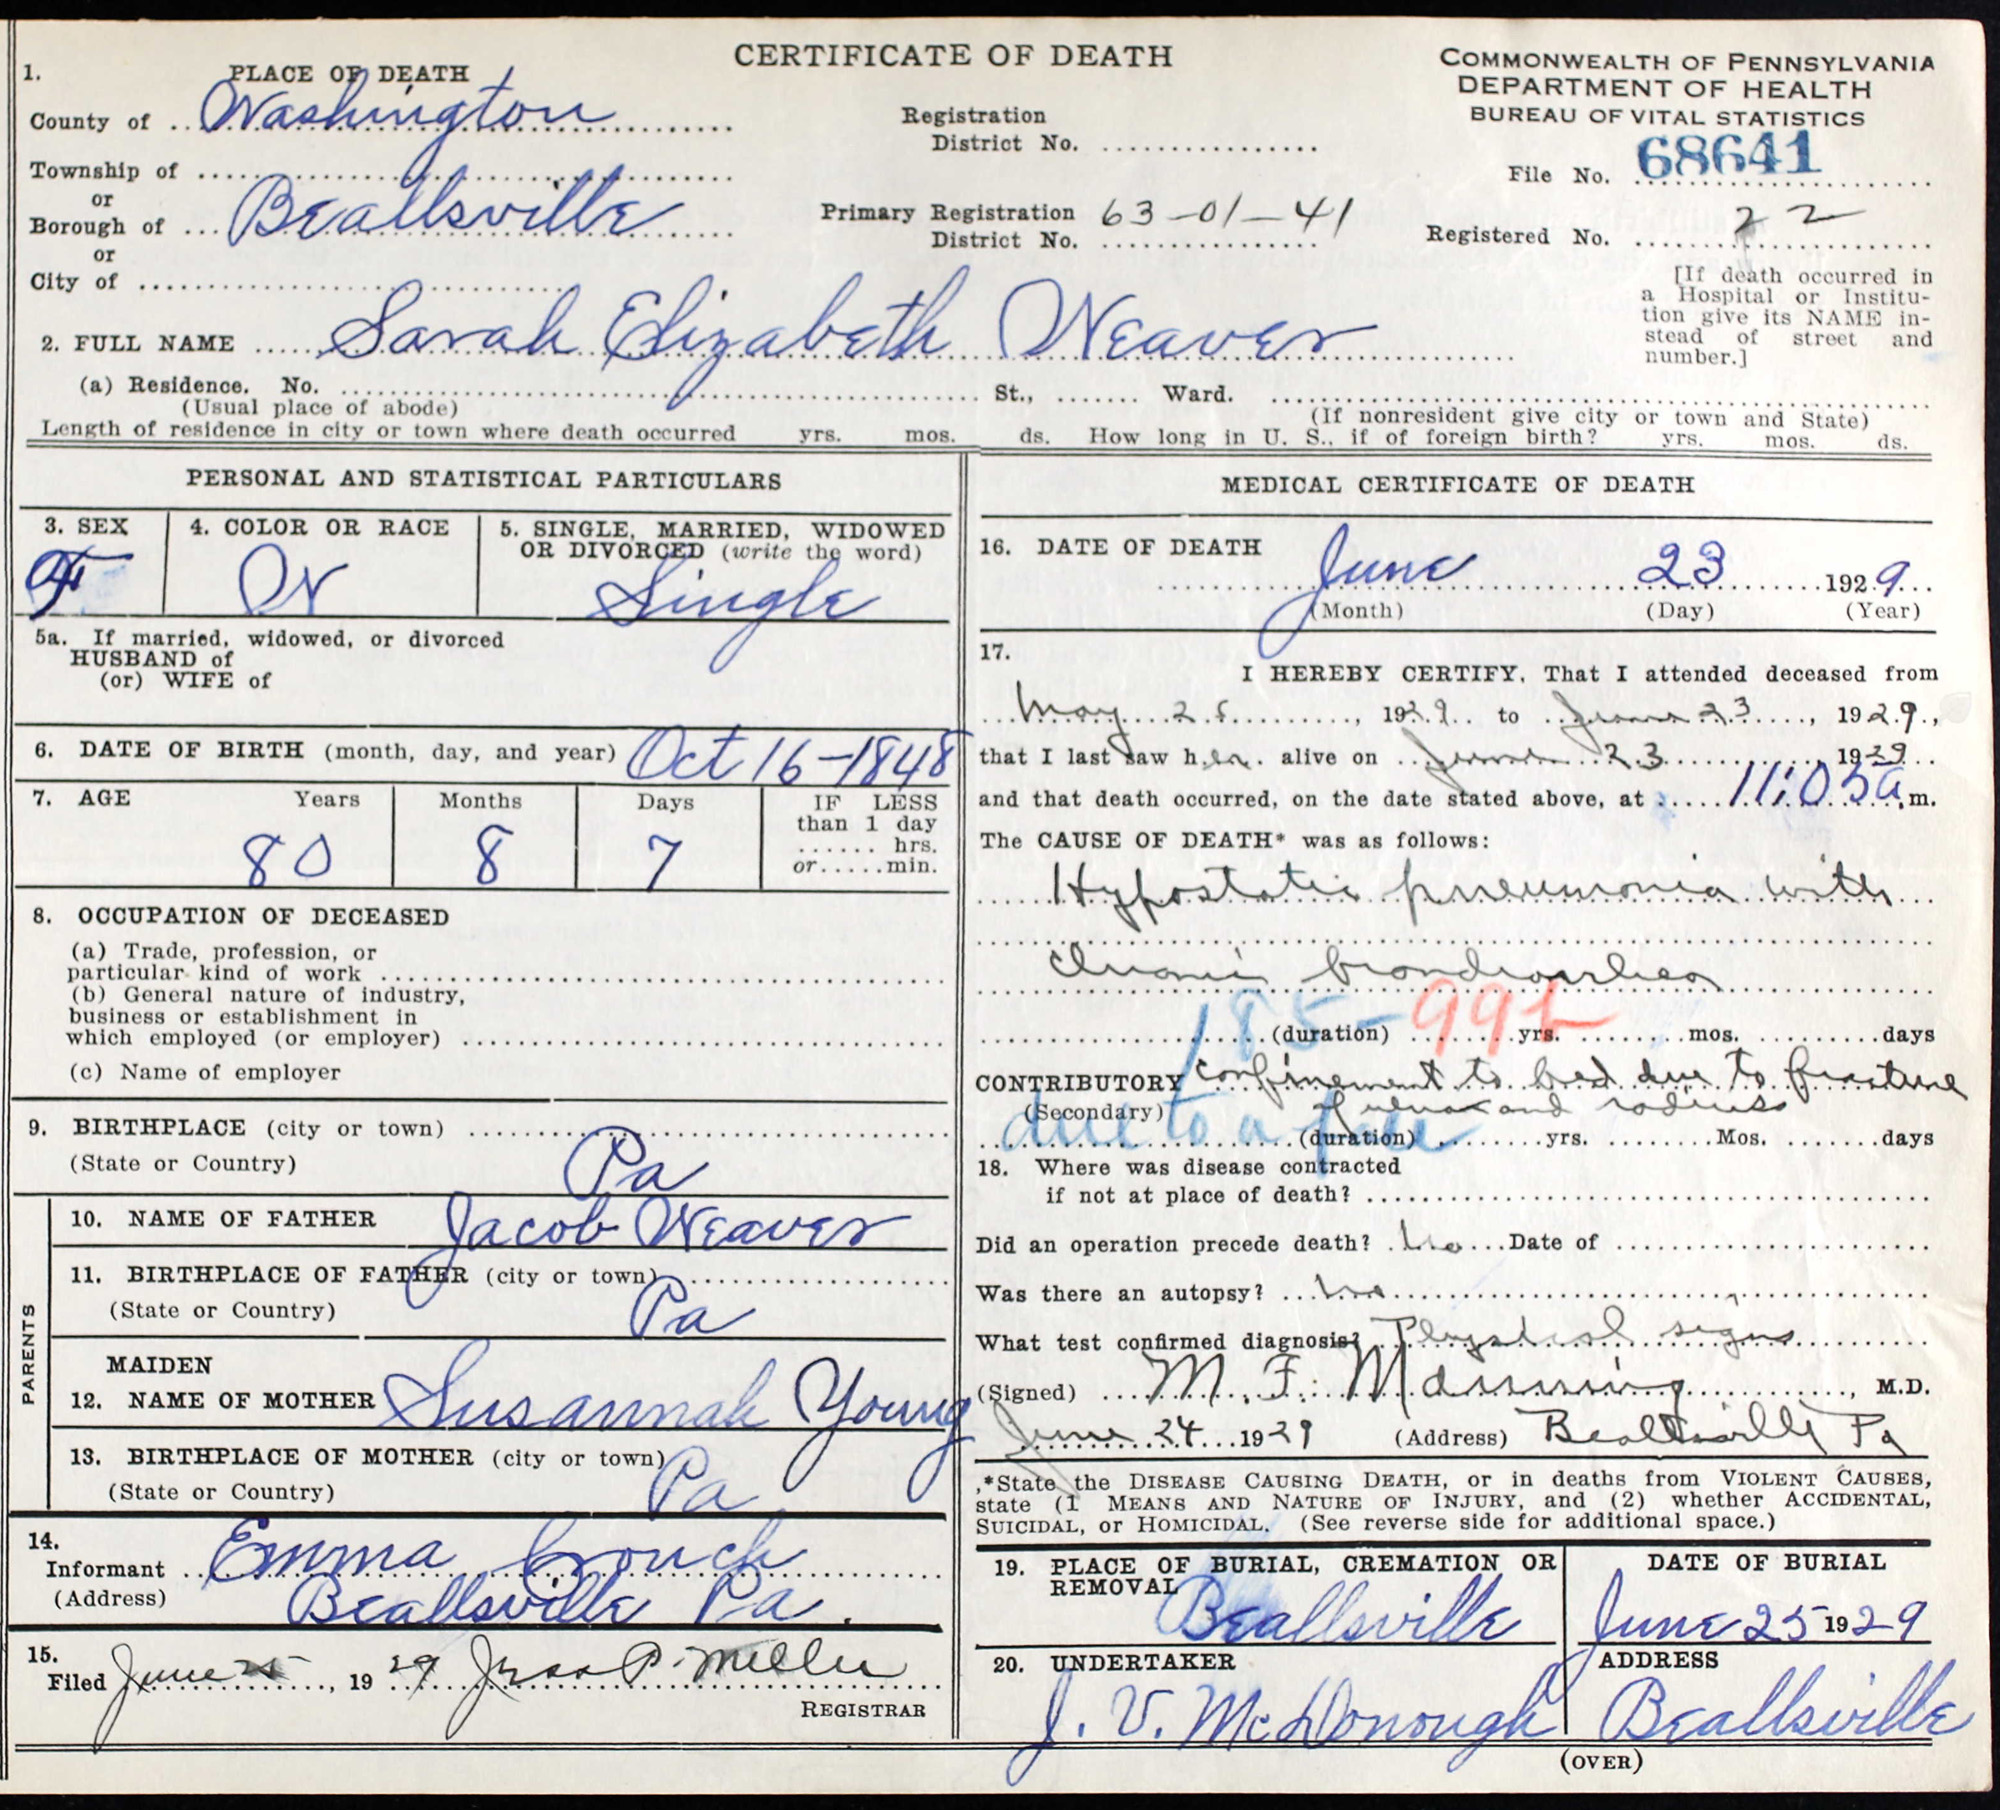 CERTIFICATE OF DEATH
COMMONWEALTH OF PENNSYLVANIA
DEPARTMENT OF HEALTH
BUREAU OF VITAL STATISTICS
1. PLACE OF DEATH
County of Washington
Registration
District No.
File No. 68641
Township of
or
Borough of Beallsville
Primary Registration 63-01-41
District No.
Registered No. 22
or
City of
[If death occurred in
a Hospital or Institu-
tion give its NAME in-
stead of street and
number.]
2. FULL NAME Sarah Elizabeth Weaver
(a) Residence. No. St., Ward.
(Usual place of abode) (If nonresident give city or town and State)
Length of residence in city or town where death occurred yrs. mos. ds. How long in U. S., if of foreign birth? yrs. mos. ds.
PERSONAL AND STATISTICAL PARTICULARS
3. SEX
F
4. COLOR OR RACE
W
5. SINGLE, MARRIED, WIDOWED
OR DIVORCED (write the word)
Single
5a. If married, widowed, or divorced
HUSBAND of
(or) WIFE of
6. DATE OF BIRTH (month, day, and year) Oct 16-1848
7. AGE Years Months Days
80 8 7
IF LESS
than 1 day
...... hrs.
or.....min.
8. OCCUPATION OF DECEASED
(a) Trade, profession, or
particular kind of work
(b) General nature of industry,
business or establishment in
which employed (or employer)
(c) Name of employer
9. BIRTHPLACE (city or town)
(State or Country) Pa
PARENTS
10. NAME OF FATHER Jacob Weaver
11. BIRTHPLACE OF FATHER (city or town)
(State or Country) Pa
MAIDEN
12. NAME OF MOTHER Susannah Young
13. BIRTHPLACE OF MOTHER (city or town)
(State or Country) Pa
14.
Informant Emma Crouch
(Address) Beallsville Pa.
15.
Filed June 25, 1929 Jesse P. Miller
REGISTRAR
MEDICAL CERTIFICATE OF DEATH
16. DATE OF DEATH June 23 1929
(Month) (Day) (Year)
17.
I HEREBY CERTIFY, That I attended deceased from
May 25, 1929 to June 23, 1929,
that I last saw her alive on June 23 1929
and that death occurred, on the date stated above, at 11:05 a.m.
The CAUSE OF DEATH* was as follows:
Hypostatic pneumonia with
chronic bronchorrhea
185-99b
(duration) yrs. mos. days
CONTRIBUTORY confinement to bed due to fracture
(Secondary) of ulna and radius
due to a fall
(duration) yrs. Mos. days
18. Where was disease contracted
if not at place of death?
Did an operation precede death? no Date of
Was there an autopsy? no
What test confirmed diagnosis? Physical signs
(Signed) M. F. Manning, M.D.
June 24 1929 (Address) Beallsville Pa
*State the DISEASE CAUSING DEATH, or in deaths from VIOLENT CAUSES,
state (1 MEANS AND NATURE OF INJURY, and (2) whether ACCIDENTAL,
SUICIDAL, or HOMICIDAL. (See reverse side for additional space.)
19. PLACE OF BURIAL, CREMATION OR
REMOVAL
Beallsville
DATE OF BURIAL
June 25 1929
20. UNDERTAKER
J. V. McDonough
ADDRESS
Beallsville
(OVER)